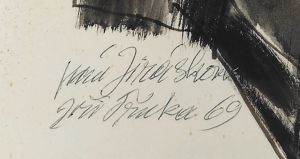 paní Jiráskové
Jiří Trnka 69